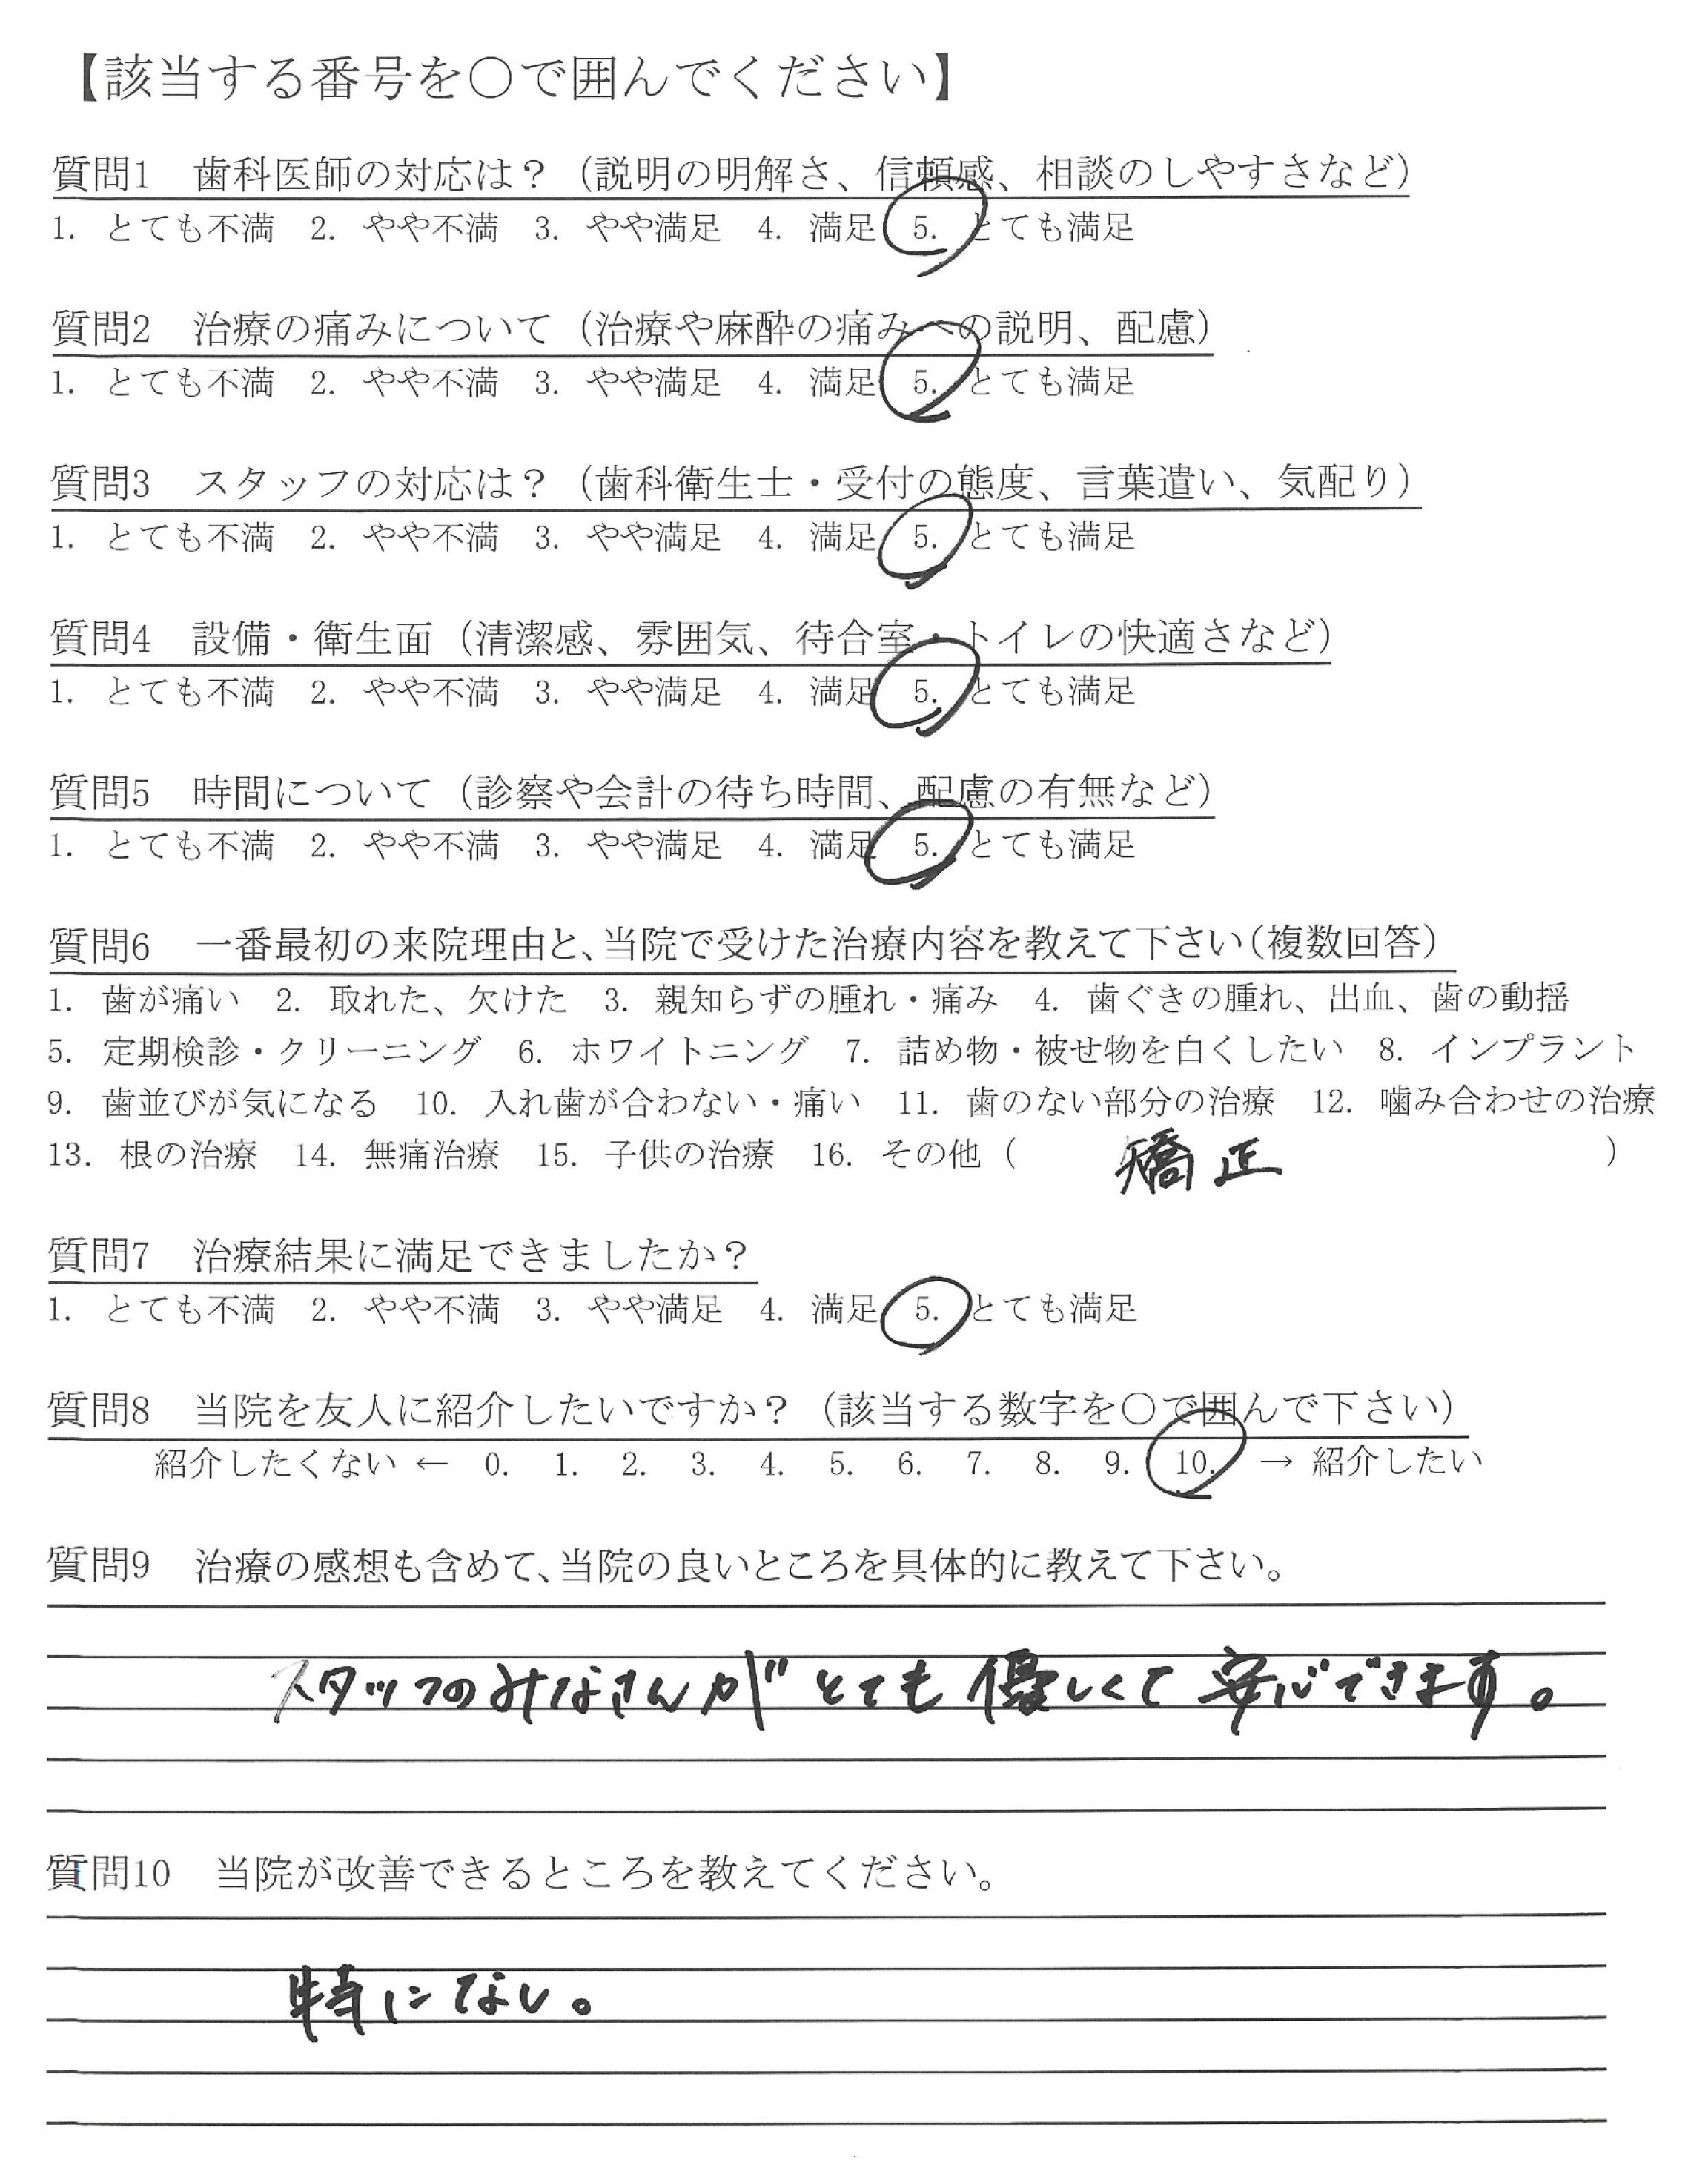 【該当する番号を〇で囲んでください】
質問1 歯科医師の対応は？（説明の明解さ、信頼感、相談のしやすさなど）
1. とても不満 2. やや不満 3. やや満足 4. 満足 5. とても満足
質問2 治療の痛みについて（治療や麻酔の痛みへの説明、配慮）
1. とても不満 2. やや不満 3. やや満足 4. 満足 5. とても満足
質問3 スタッフの対応は？（歯科衛生士・受付の態度、言葉遣い、気配り）
1. とても不満 2. やや不満 3. やや満足 4. 満足 5. とても満足
質問4 設備・衛生面（清潔感、雰囲気、待合室・トイレの快適さなど）
1. とても不満 2. やや不満 3. やや満足 4. 満足 5. とても満足
質問5 時間について（診察や会計の待ち時間、配慮の有無など）
1. とても不満 2. やや不満 3. やや満足 4. 満足 5. とても満足
質問6 一番最初の来院理由と、当院で受けた治療内容を教えて下さい（複数回答）
1. 歯が痛い 2. 取れた、欠けた 3. 親知らずの腫れ・痛み 4. 歯ぐきの腫れ、出血、歯の動揺
5. 定期検診・クリーニング 6. ホワイトニング 7. 詰め物・被せ物を白くしたい 8. インプラント
9. 歯並びが気になる 10. 入れ歯が合わない・痛い 11. 歯のない部分の治療 12. 噛み合わせの治療
13. 根の治療 14. 無痛治療 15. 子供の治療 16. その他（ 矯正 ）
質問7 治療結果に満足できましたか？
1. とても不満 2. やや不満 3. やや満足 4. 満足 5. とても満足
質問8 当院を友人に紹介したいですか？（該当する数字を〇で囲んで下さい）
紹介したくない ← 0. 1. 2. 3. 4. 5. 6. 7. 8. 9. 10. → 紹介したい
質問9 治療の感想も含めて、当院の良いところを具体的に教えて下さい。
スタッフのみなさんが とても 優しくて 安心できます。
質問10 当院が改善できるところを教えてください。
特になし。